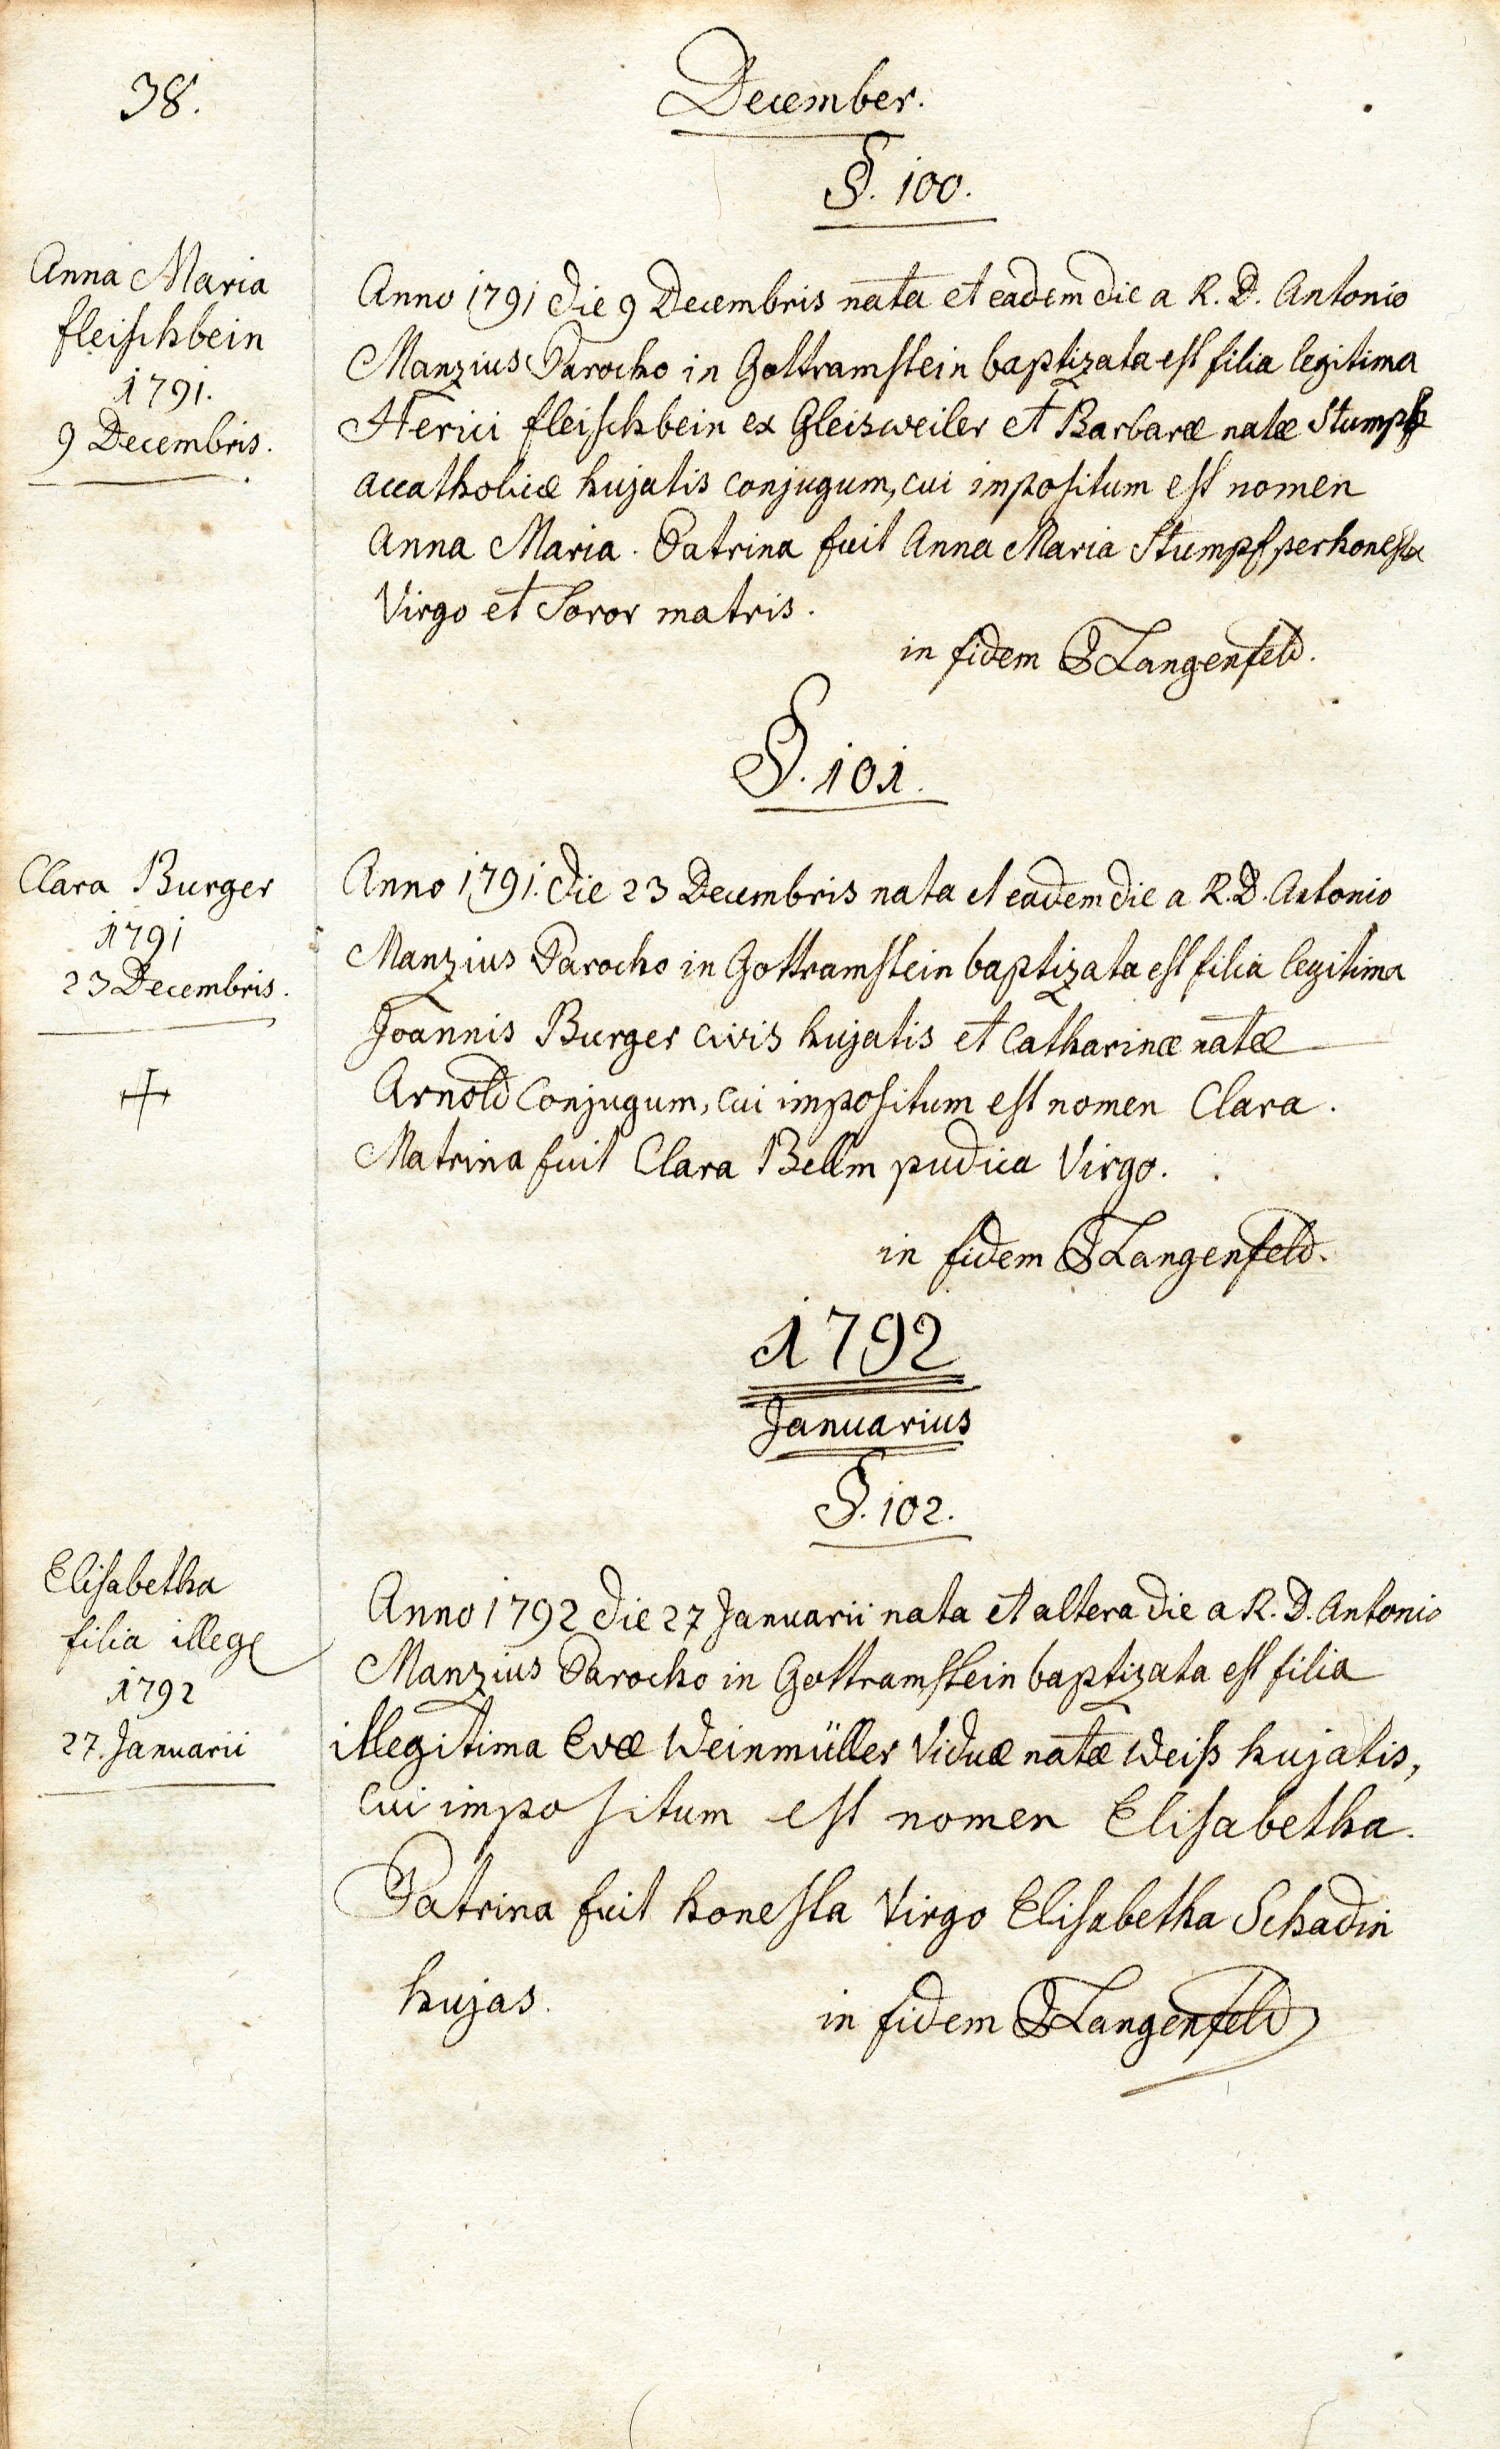 38.
December.
§. 100.
Anna Maria
fleischbein
1791.
9 Decembris.
Anno 1791 die 9 Decembris nata et eadem die a R. D. Antonio
Manzius Parocho in Gottramstein baptizata est filia legitima
Herici fleischbein ex Gleisweiler et Barbaræ natæ Stumpf
accatholicæ hujatis conjugum, cui impositum est nomen
Anna Maria. Patrina fuit Anna Maria Stumpf perhonesta
Virgo et Soror matris.
in fidem Langenfeld.
§. 101.
Clara Burger
1791
23 Decembris.
Anno 1791. die 23 Decembris nata et eadem die a R. D. Antonio
Manzius Parocho in Gottramstein baptizata est filia legitima
Joannis Burger civis hujatis et Catharinæ natæ
Arnold Conjugum, cui impositum est nomen Clara.
Matrina fuit Clara Bellm pudica Virgo.
in fidem Langenfeld.
1792
Januarius
§. 102.
Elisabetha
filia illeg
1792
27. Januarii
Anno 1792 die 27 Januarii nata et altera die a R. D. Antonio
Manzius Parocho in Gottramstein baptizata est filia
illegitima Evæ Weinmüller Viduæ natæ Weiß hujatis,
cui impositum est nomen Elisabetha.
Patrina fuit honesta Virgo Elisabetha Schadin
hujas.
in fidem Langenfeld